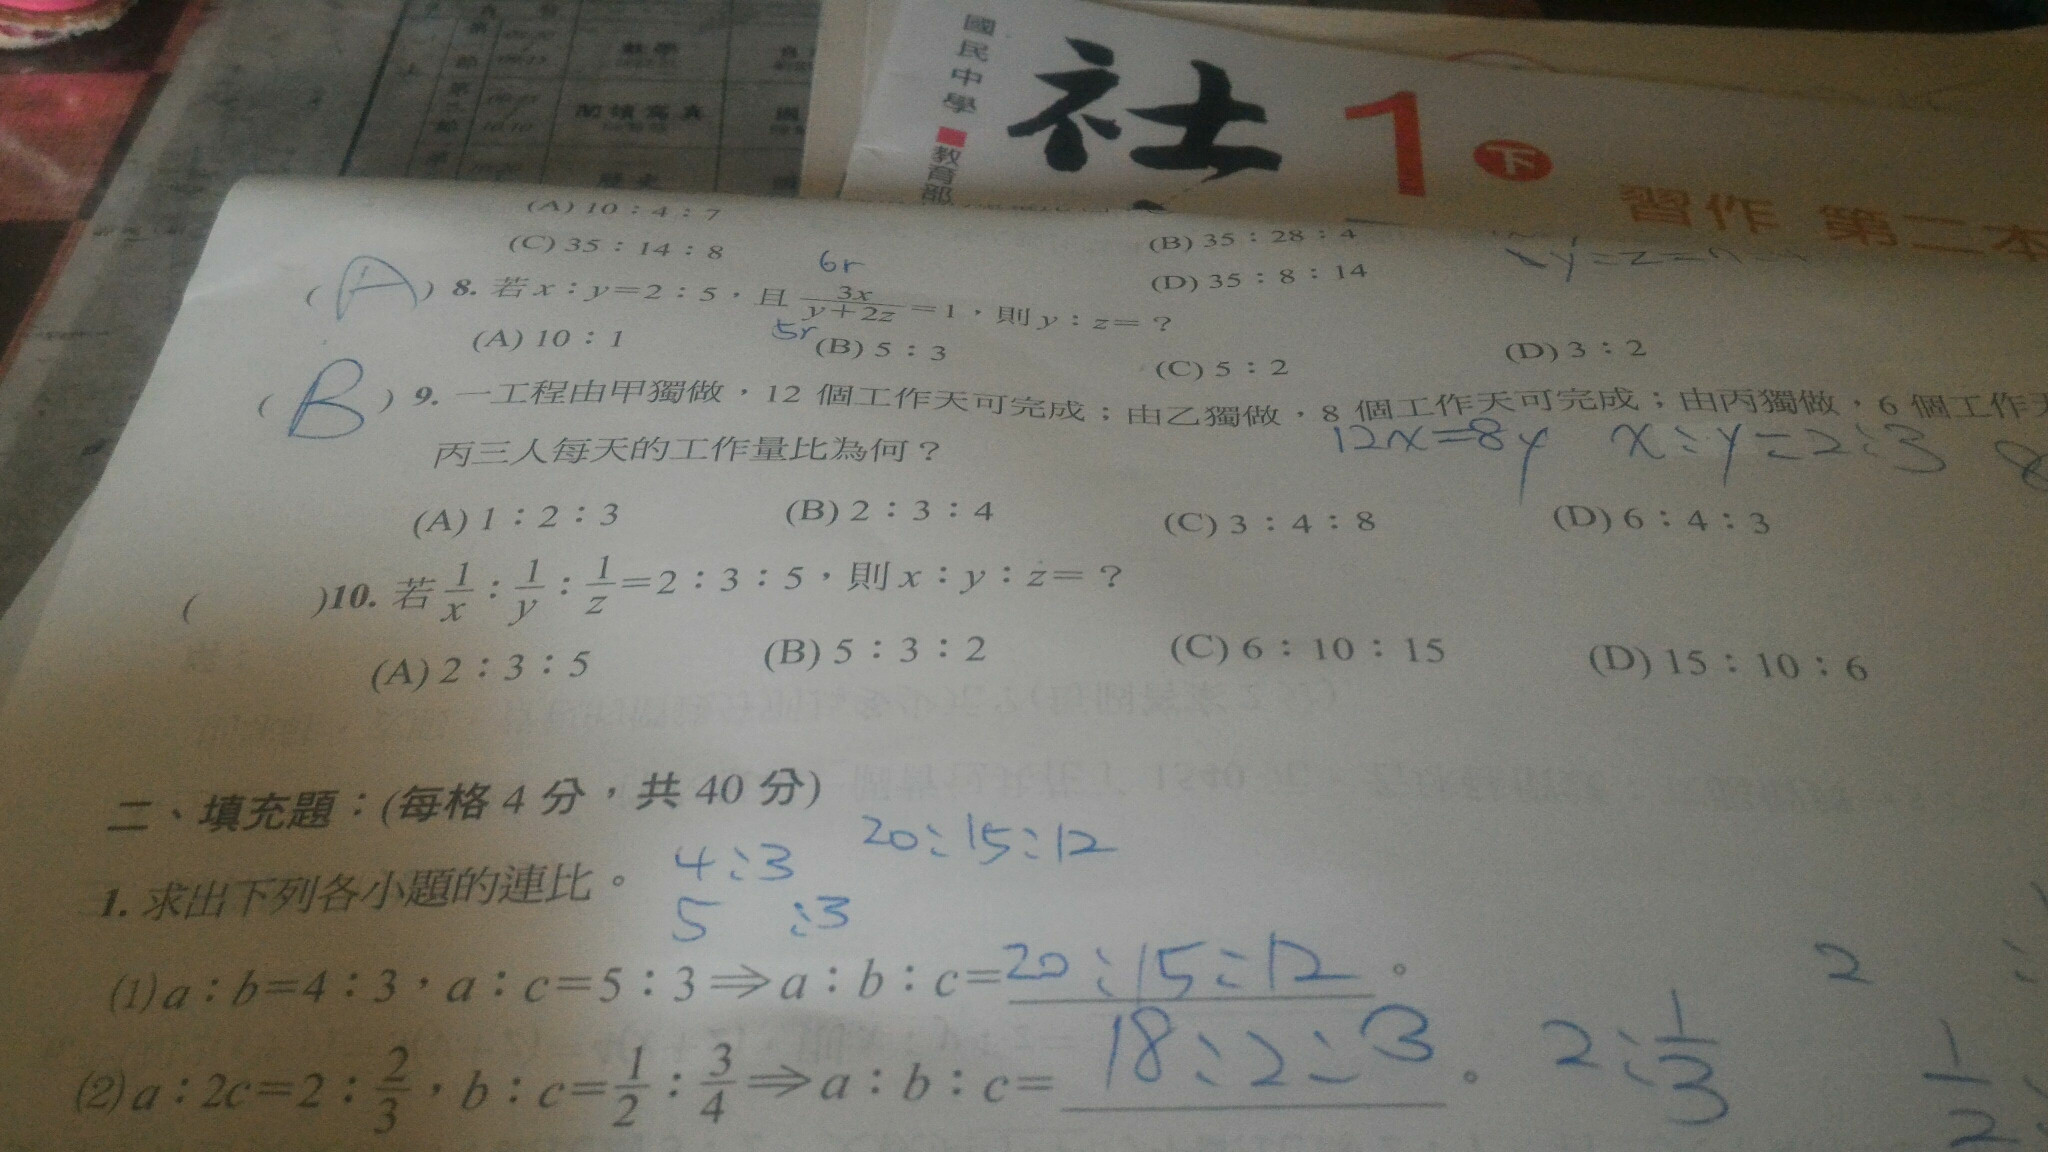 國民中學
教育部
社 1 下
習作 第二本
數學
歷史
(A) 10：4：7
(B) 35：28：4
(C) 35：14：8
(D) 35：8：14
6r
( A ) 8. 若 x：y＝2：5，且 3x/(y＋2z)＝1，則 y：z＝？
5r
(A) 10：1 (B) 5：3 (C) 5：2 (D) 3：2
( B ) 9. 一工程由甲獨做，12 個工作天可完成；由乙獨做，8 個工作天可完成；由丙獨做，6 個工作天
丙三人每天的工作量比為何？
12x=8y x:y=2:3 8
(A) 1：2：3 (B) 2：3：4 (C) 3：4：8 (D) 6：4：3
( )10. 若 1/x：1/y：1/z＝2：3：5，則 x：y：z＝？
(A) 2：3：5 (B) 5：3：2 (C) 6：10：15 (D) 15：10：6
二、填充題：(每格 4 分，共 40 分)
4:3 20:15:12
1. 求出下列各小題的連比。
5 :3
(1) a：b＝4：3，a：c＝5：3⇒a：b：c＝20:15:12。
2 :
(2) a：2c＝2：2/3，b：c＝1/2：3/4⇒a：b：c＝18:2:3。
2:1/3
1/2: